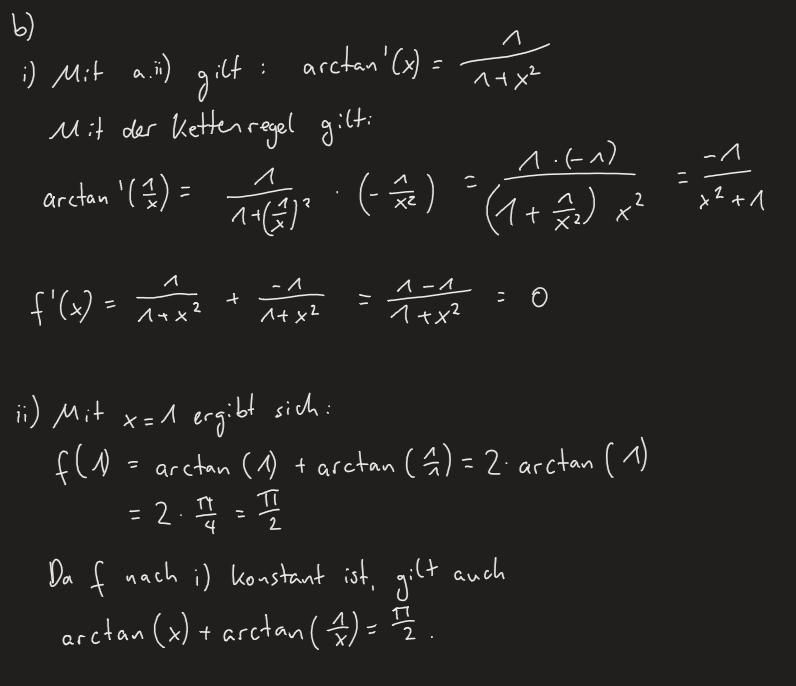 b)
i) Mit a.ii) gilt : arctan'(x) = 1/(1+x²)
Mit der Kettenregel gilt:
arctan'(1/x) = 1/(1+(1/x)²) · (-1/x²) = (1·(-1))/((1+1/x²) x²) = -1/(x²+1)
f'(x) = 1/(1+x²) + -1/(1+x²) = (1-1)/(1+x²) = 0
ii) Mit x=1 ergibt sich:
f(1) = arctan(1) + arctan(1/1) = 2· arctan(1)
= 2 · π/4 = π/2
Da f nach i) konstant ist, gilt auch
arctan(x) + arctan(1/x) = π/2 .